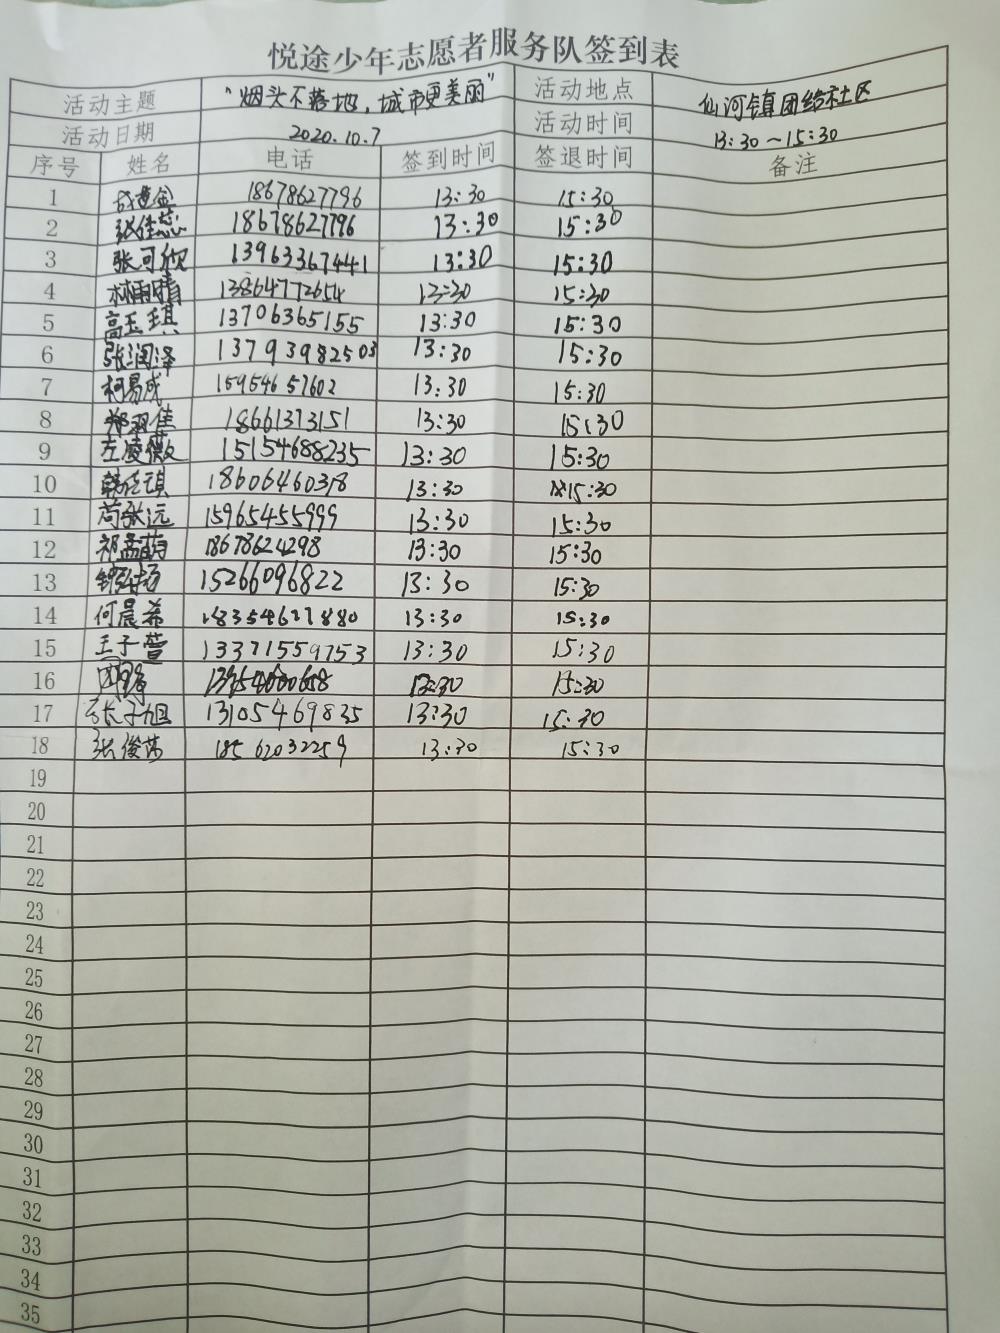 悦途少年志愿者服务队签到表
活动主题 "烟头不落地，城市更美丽" 活动地点 仙河镇团结社区
活动日期 2020.10.7 活动时间 13:30～15:30
序号 姓名 电话 签到时间 签退时间 备注
1 18678627796 13:30 15:30
2 张佳慧 18678627796 13:30 15:30
3 张可欣 13963367441 13:30 15:30
4 林雨晴 13864772654 13:30 15:30
5 高玉琪 13706365155 13:30 15:30
6 张润泽 13793982503 13:30 15:30
7 柯易成 15954657602 13:30 15:30
8 郑羽佳 18661373151 13:30 15:30
9 左凌薇 15154688235 13:30 15:30
10 18606460318 13:30 15:30
11 15965455999 13:30 15:30
12 祁孟萌 18678624298 13:30 15:30
13 15266096822 13:30 15:30
14 何晨希 13:30 15:30
15 王子萱 13371559753 13:30 15:30
16 13:30 15:30
17 张子旭 13105469835 13:30 15:30
18 18562032259 13:30 15:30
19
20
21
22
23
24
25
26
27
28
29
30
31
32
33
34
35